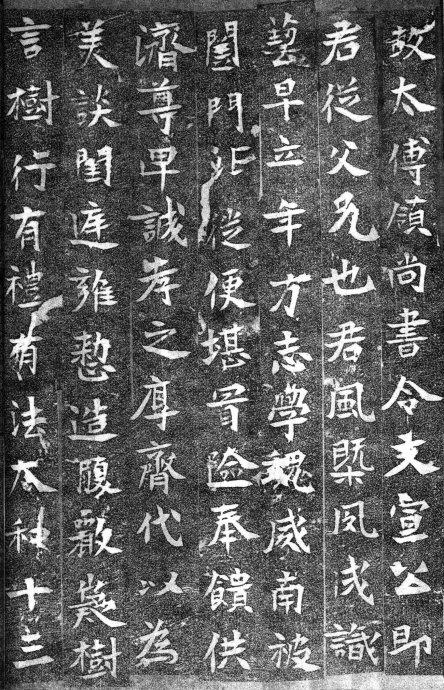 故太傅領尚書令文宣公即
君從父兄也君風槩夙成識
藝早立年方志學魏威南被
闔門北從便堪冒險奉饋供
濟尊卑誠孝之厚齊代以為
美談閨庭雍造嚴樹
言樹行有禮有法太和十三